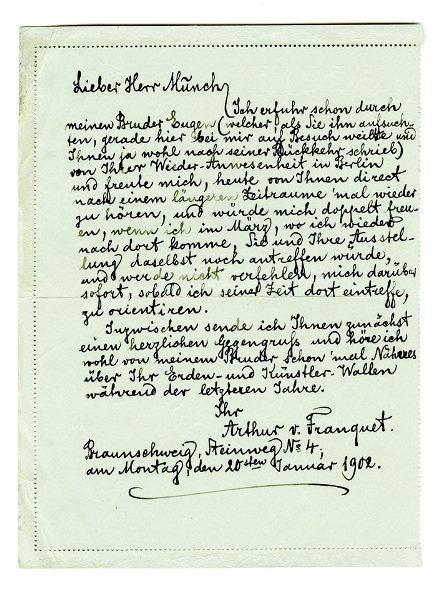 Lieber Herr Münch
Ich erfuhr schon durch
meinen Bruder Eugen (welcher, als Sie ihn aufsuch-
ten, gerade hier bei mir auf Besuch weilte und
Ihnen ja wohl nach seiner Rückkehr schrieb)
von Ihrer Wieder-Anwesenheit in Berlin
und freute mich, heute von Ihnen direct
nach einem längeren Zeitraume 'mal wieder
zu hören, und würde mich doppelt freu-
en, wenn ich im März, wo ich wieder
nach dort komme, Sie und Ihre Ausstel-
lung daselbst noch antreffen würde,
und werde nicht verfehlen, mich darüber
sofort, sobald ich seiner Zeit dort eintreffe,
zu orientiren.
Inzwischen sende ich Ihnen zunächst
einen herzlichen Gegengruß und höre ich
wohl von meinem Bruder schon 'mal Näheres
über Ihr Erden- und Künstler-Wallen
während der letzteren Jahre.
Ihr
Arthur v. Franquet.
Braunschweig, Steinweg No 4,
am Montag, den 20sten Januar 1902.